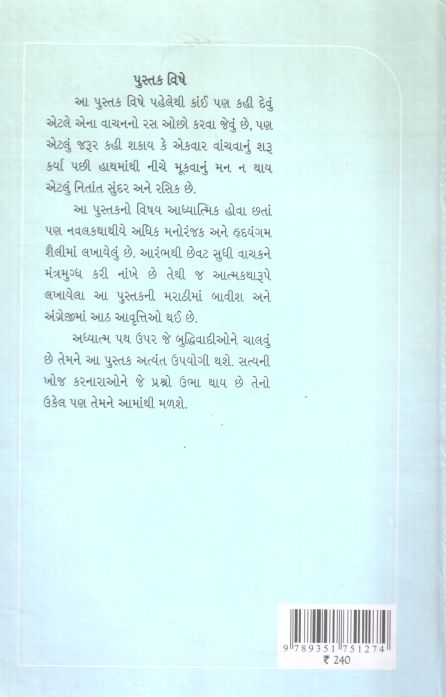 પુસ્તક વિષે
આ પુસ્તક વિષે પહેલેથી કાંઈ પણ કહી દેવું
એટલે એના વાચનનો રસ ઓછો કરવા જેવું છે, પણ
એટલું જરૂર કહી શકાય કે એકવાર વાંચવાનું શરૂ
કર્યા પછી હાથમાંથી નીચે મૂકવાનું મન ન થાય
એટલું નિતાંત સુંદર અને રસિક છે.
આ પુસ્તકનો વિષય આધ્યાત્મિક હોવા છતાં
પણ નવલકથાથીયે અધિક મનોરંજક અને હૃદયંગમ
શૈલીમાં લખાયેલું છે. આરંભથી છેવટ સુધી વાચકને
મંત્રમુગ્ધ કરી નાંખે છે તેથી જ આત્મકથારૂપે
લખાયેલા આ પુસ્તકની મરાઠીમાં બાવીશ અને
અંગ્રેજીમાં આઠ આવૃત્તિઓ થઈ છે.
અધ્યાત્મ પથ ઉપર જે બુદ્ધિવાદીઓને ચાલવું
છે તેમને આ પુસ્તક અત્યંત ઉપયોગી થશે. સત્યની
ખોજ કરનારાઓને જે પ્રશ્નો ઉભા થાય છે તેનો
ઉકેલ પણ તેમને આમાંથી મળશે.
9 789351 751274
₹ 240